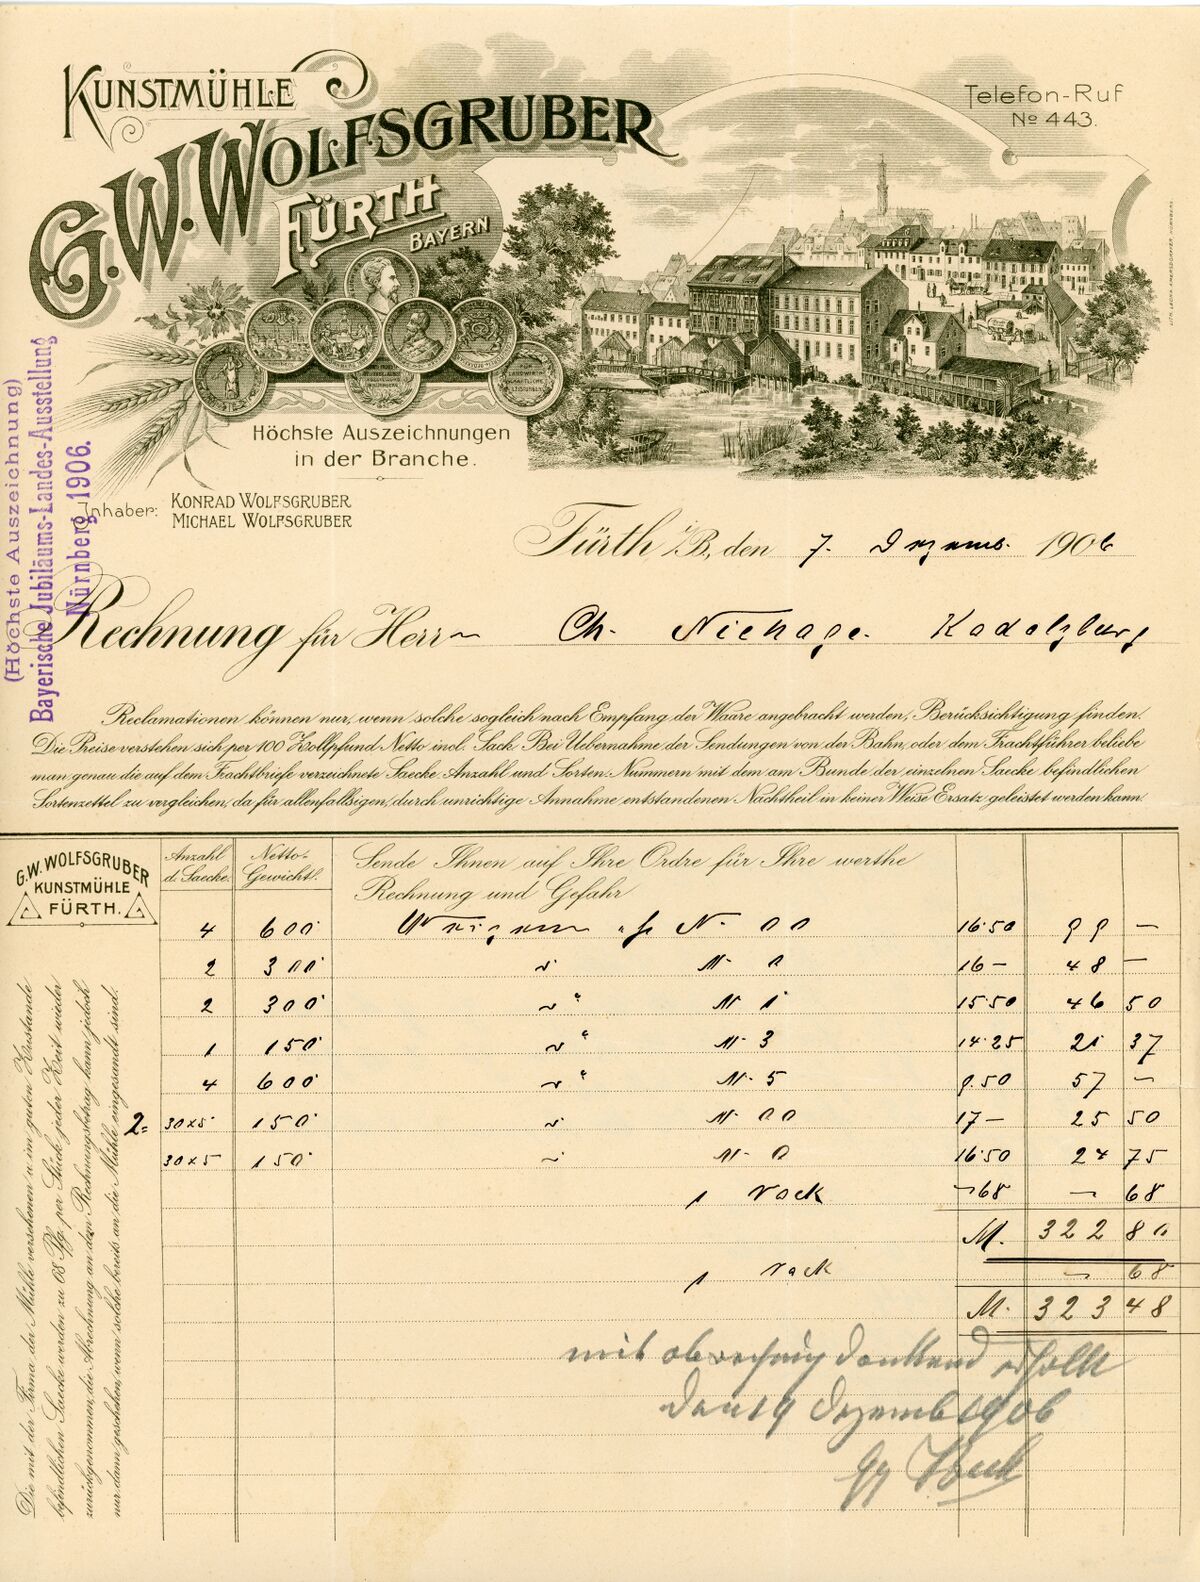 KUNSTMÜHLE
G.W. WOLFSGRUBER
FÜRTH
BAYERN
Telefon-Ruf
No 443.
Höchste Auszeichnungen
in der Branche.
Inhaber: KONRAD WOLFSGRUBER
MICHAEL WOLFSGRUBER
(Höchste Auszeichnung)
Bayerische Jubiläums-Landes-Ausstellung
Nürnberg 1906.
Fürth i/B, den 7. Dezemb. 1906
Rechnung für Herrn Ch. Niehage. Kadolzburg
Reclamationen können nur, wenn solche sogleich nach Empfang der Waare angebracht werden, Berücksichtigung finden.
Die Preise verstehen sich per 100 Zollpfund Netto incl. Sack. Bei Uebernahme der Sendungen von der Bahn, oder dem Frachtführer beliebe
man genau die auf dem Frachtbriefe verzeichnete Saecke Anzahl und Sorten Nummern mit dem am Bunde der einzelnen Saecke befindlichen
Sortenzettel zu vergleichen, da für allenfallsigen, durch unrichtige Annahme entstandenen Nachtheil in keiner Weise Ersatz geleistet werden kann.
G.W. WOLFSGRUBER
KUNSTMÜHLE
FÜRTH.
Anzahl d. Saecke. Netto-Gewicht. Sende Ihnen auf Ihre Ordre für Ihre werthe
Rechnung und Gefahr
4 600 Weizen N. 00 16.50 99 –
2 300 " N. 0 16 – 48 –
2 300 " N. 1 15.50 46 50
1 150 " N. 3 14.25 21 37
4 600 " N. 5 9.50 57 –
2= 30x5 150 " N. 00 17 – 25 50
30x5 150 " N. 0 16.50 24 75
1 Sack – 68 – 68
M. 322 80
1 Sack – 68
M. 323 48
mit dankend erhallt
den 19 Dezemb 1906
Die mit der Firma der Mühle versehenen u. im guten Zustande
befindlichen Saecke werden zu 68 Pfg. per Stück jeder Zeit wieder
zurückgenommen, die Abrechnung an dem Rechnungsbetrag kann jedoch
nur dann geschehen, wenn solche bereits an die Mühle eingesandt sind.